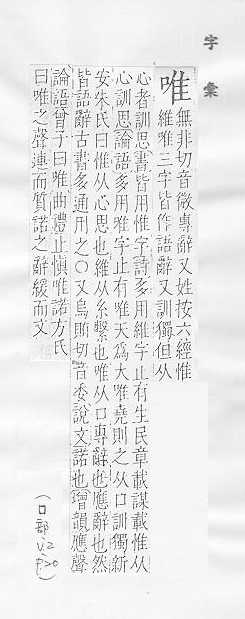 字彙
唯
無非切音微專辭又姓按六經惟
維唯三字皆作語辭又訓獨但从
心者訓思書皆用惟字詩多用維字止有生民章載謀載惟从
心訓思論語多用唯字止有唯天為大唯堯則之从口訓獨新
安朱氏曰惟从心思也維从糸繫也唯从口專辭也應辭也然
皆語辭古書多通用之〇又烏賄切音委說文諾也增韻應聲
論語曾子曰唯曲禮止慎唯諾方氏
曰唯之聲連而質諾之辭緩而文
(口部, v.2 p20)